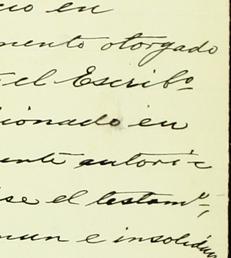 cio en
mento otorgado
el Escribº
cionado en
ente autori-
se el testamº,
mun e insolidun